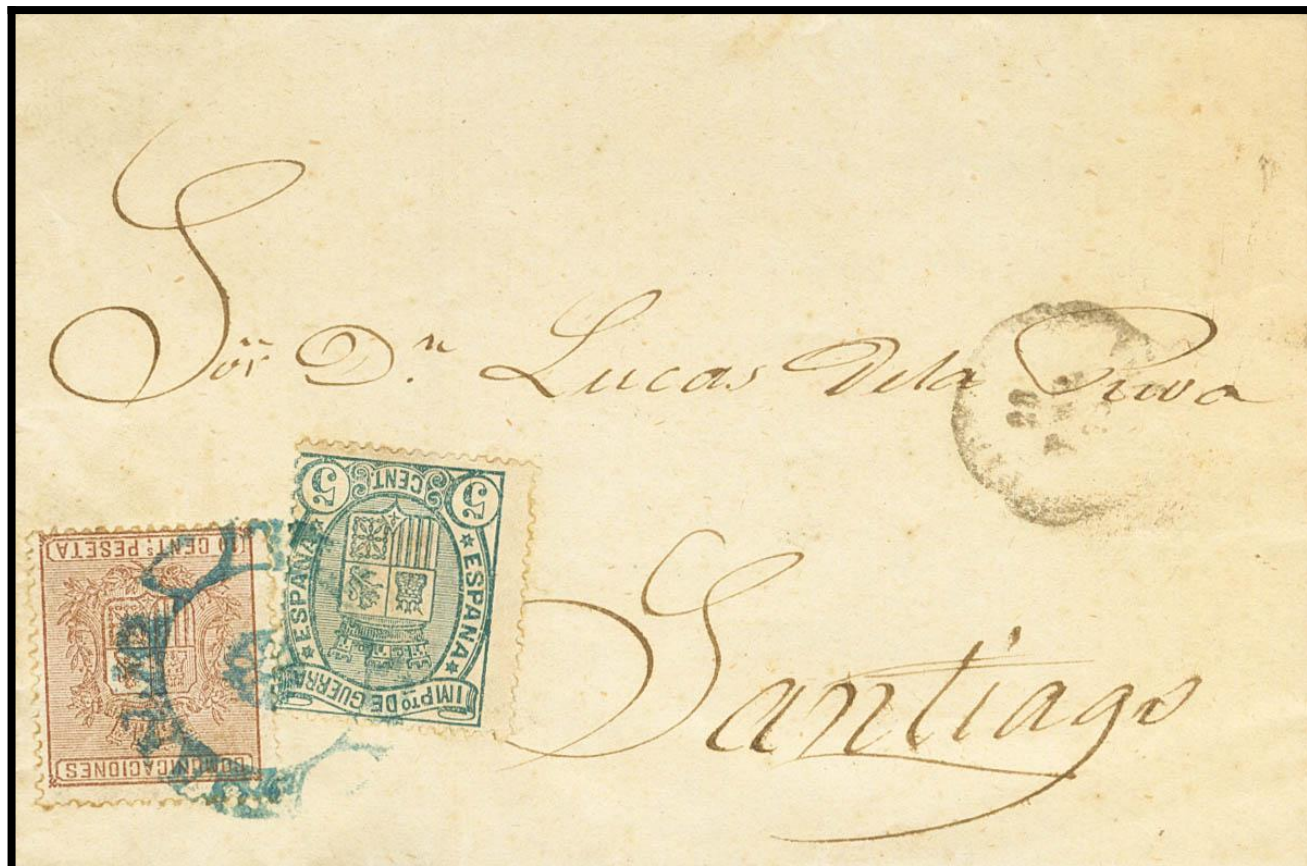 Sor. Dn. Lucas Dela Riva
Santiago
5 CENT. 5
★ ESPAÑA ★ ESPAÑA ★
IMPto DE GUERRA
10 CENTs PESETA
COMUNICACIONES